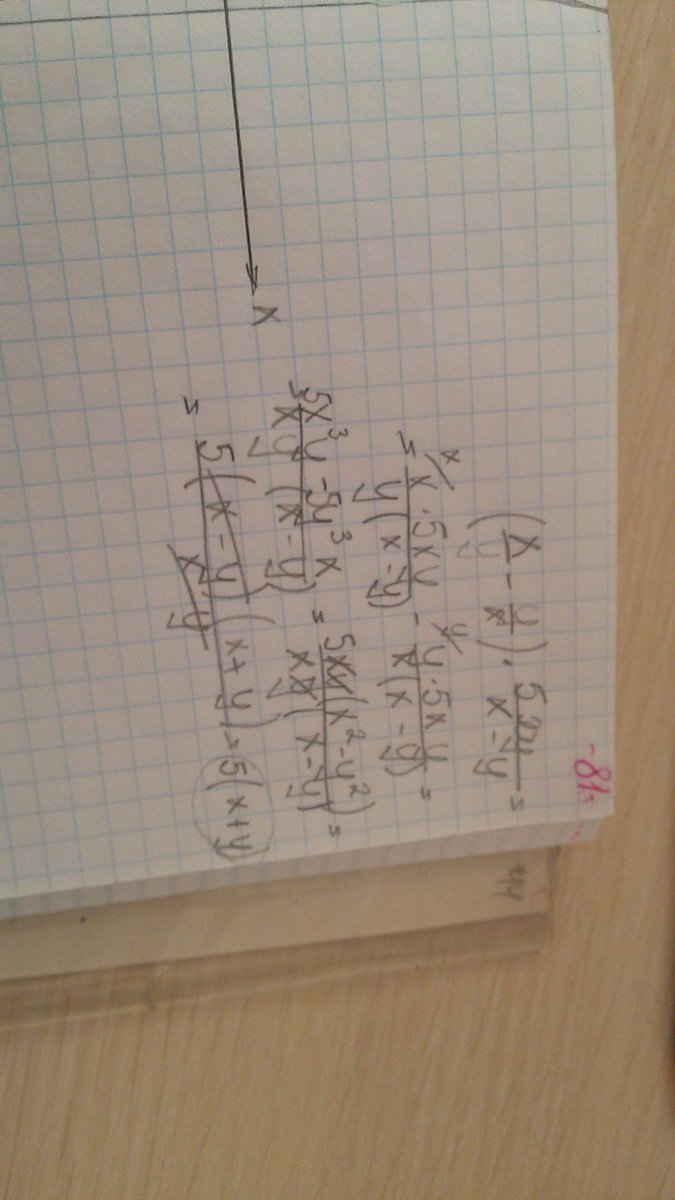 -81
(x/y - y/x) · 5xy/(x-y) =
= x · 5xy/y(x-y) - y · 5xy/x(x-y) =
= 5x³y - 5y³x/xy(x-y) = 5xy(x²-y²)/xy(x-y) =
= 5(x-y)(x+y)/x-y = 5(x+y)
x
44